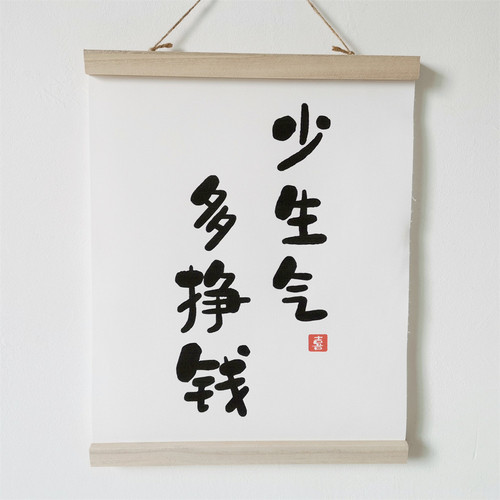 少生气
多挣钱
喜